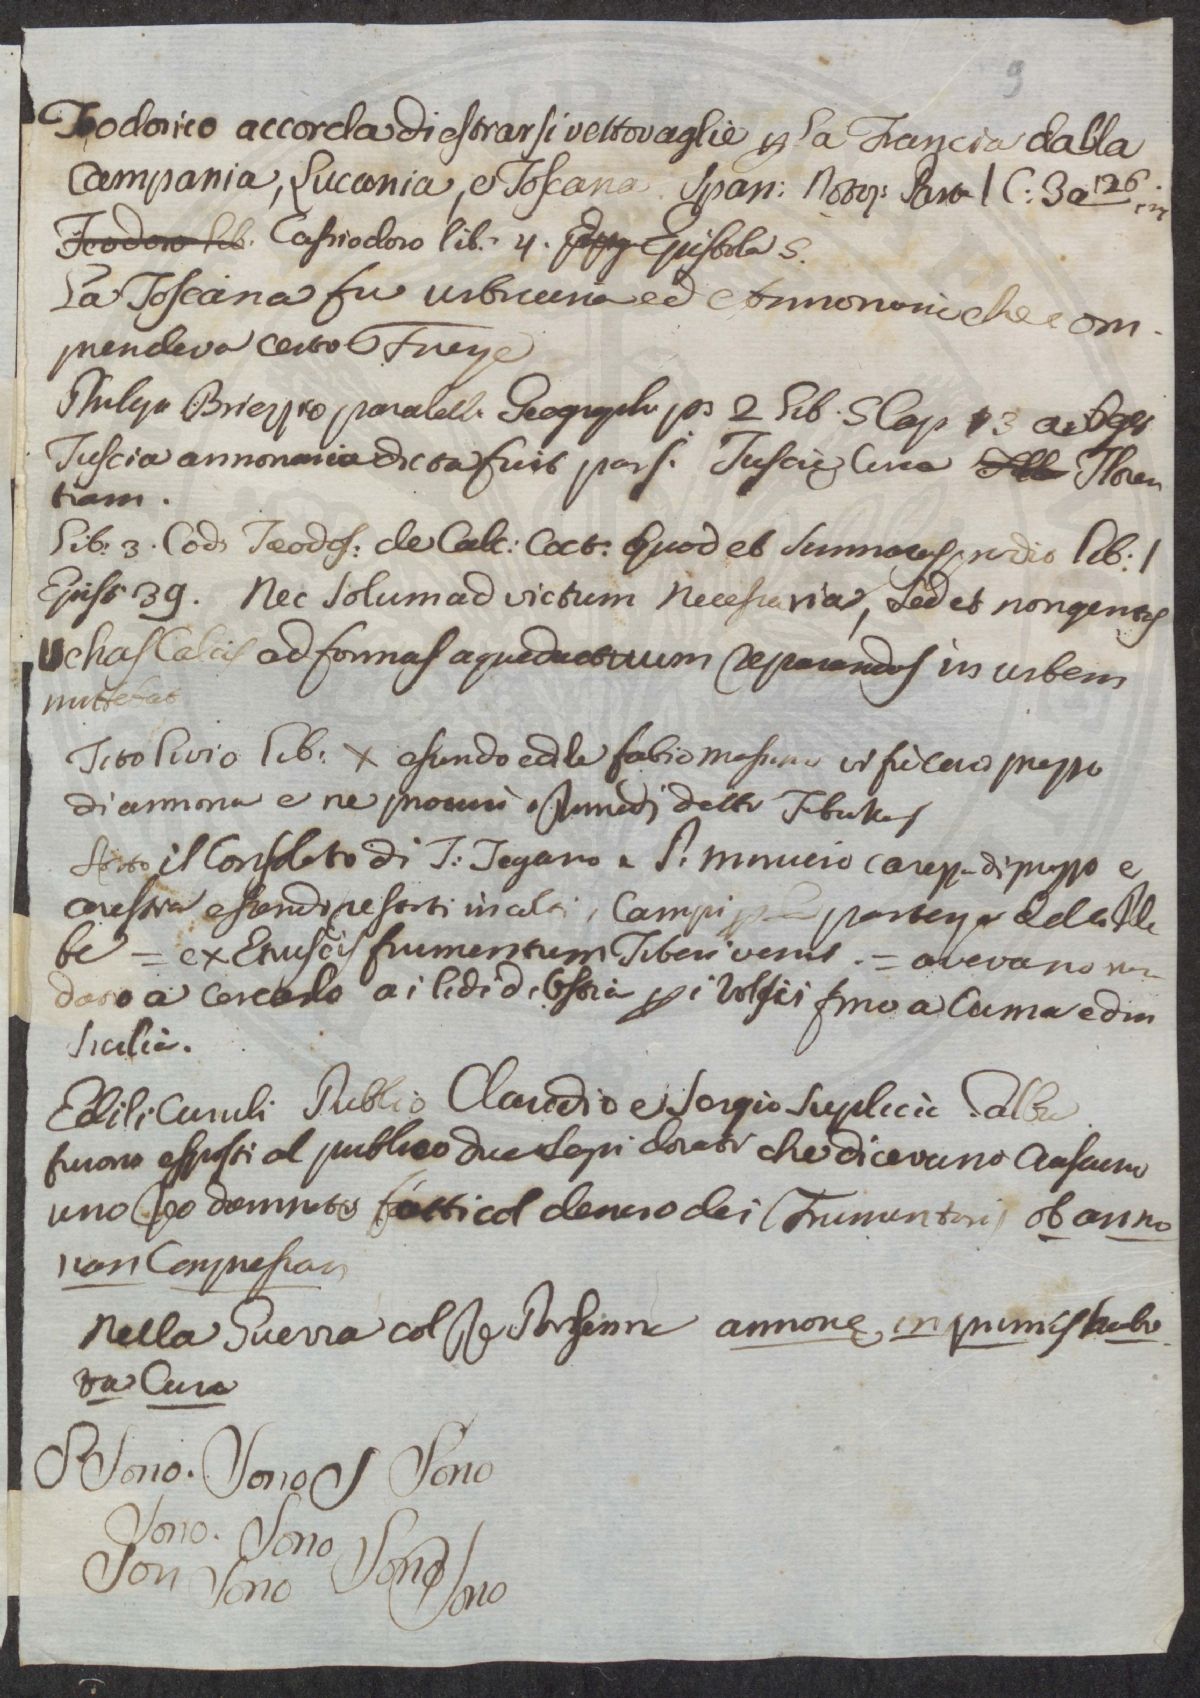 9
Teodorico accorda di estrarsi vettovaglie p la Francia dalla
Campania, Lucania, e Toscana. Span: Notop: Parte 1 C: 3 a 126. in
Teodoro lib. Cassiodoro lib. 4. Epistola 5.
La Toscana fu urbicaria ed Annonaria che com-
prendeva certo
Philipp Briezzio paralelli Geograph ps 2 lib. 5 Cap 3
Tuscia annonaria dicta fuit pars Tusciȩ circa Floren
tiam.
Lib: 3. Cod Teodos: de Calc: Coct: Quod et Summacus lib: 1
Epist 39. Nec solum ad victum necessaria, sed et nongentas
vehas Calcis ad formas aqueductuum reparandas in urbem
mittebat
Tito Livio lib: X essendo edile fabio massimo vi fu caro prezzo
di annona e ne
Sotto il Consolato di T: Tegano e P. Minucio carezza di prezzo e
carestia essendo restati incolti i Campi per partenza della Ple
be = ex Etuscis frumentum Tiberi venit. = avevano man
dato a cercarlo ai lidi d'Ostia p i Volsci fino a Cuma ed in
Sicilia.
Edili Curuli Publio Claudio e Sergio Suplicio Galba
furono esposti al publico due Segni dorati che dicevano
uno fatti col denaro dei Frumentarij ob anno
nam Compressam
Nella Guerra col Re Porsenna annonȩ in primis habi
ta Cura
S Sono. Sono S Sono
Sono. Sono
Son Sono Sono Sono